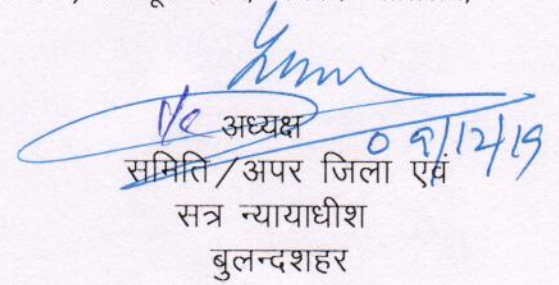 I/C अध्यक्ष
09/12/19
समिति/अपर जिला एवं
सत्र न्यायाधीश
बुलन्दशहर